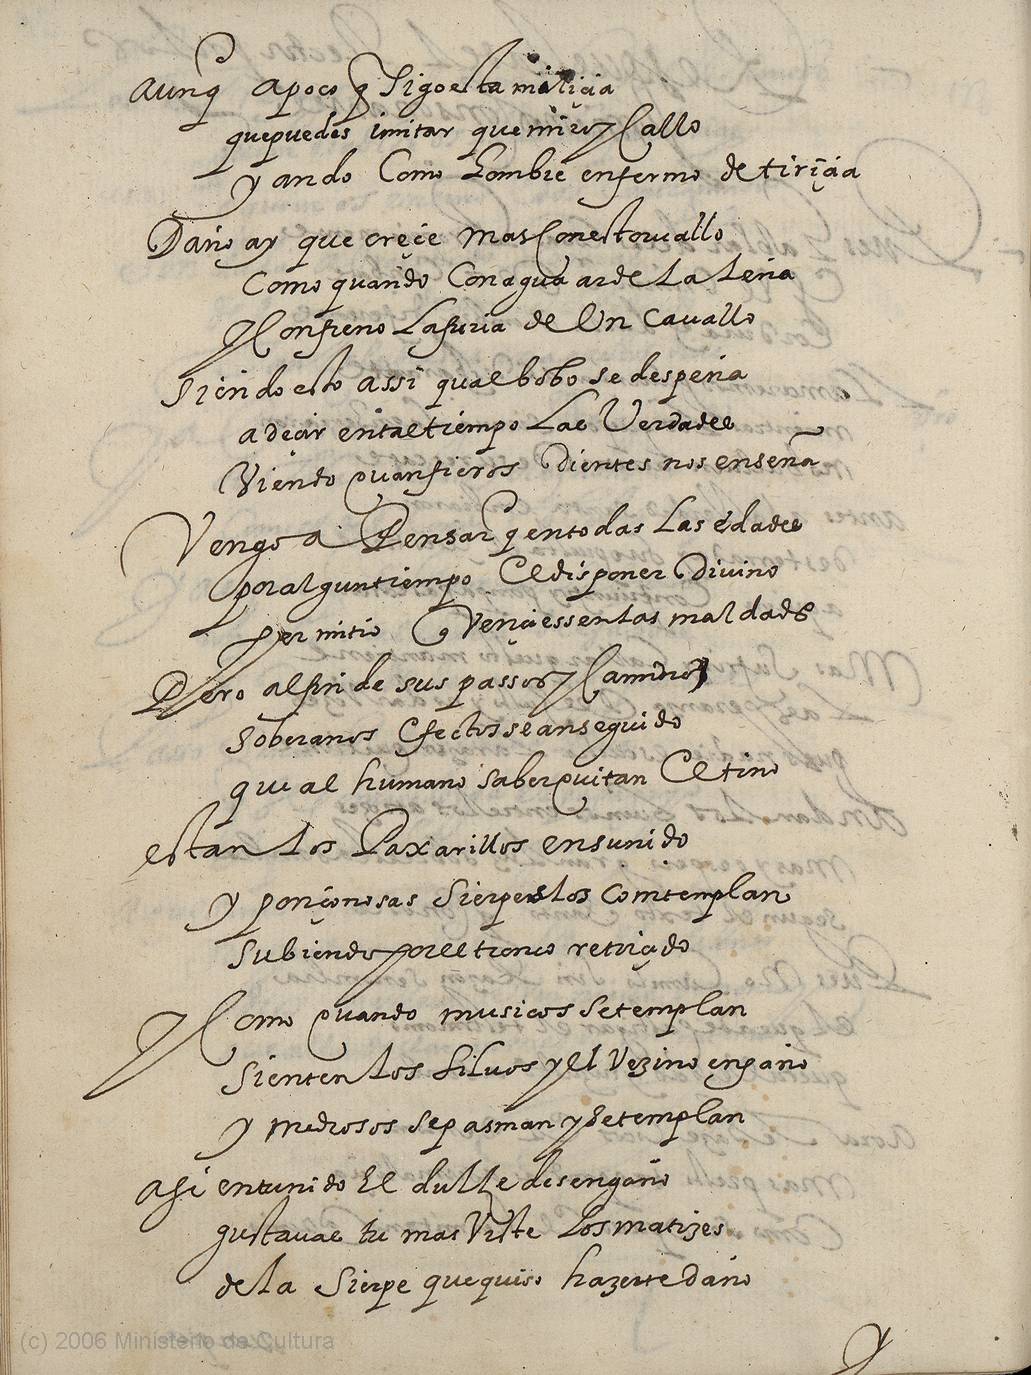 aunq̃ apoco q̃ sigo esta miliçia
que puedes imitar que miro y Callo
y ando Como hombre enfermo de tiriçia
Daño ay que creçe mas Con estorvallo
Como quando Con agua arde La leña
y Con freno La furia de Un cavallo
Siendo esto assi qual bobo se despeña
a deçir en tal tiempo Las Verdades
Viendo quan fieros Dientes nos enseña
Vengo a Pensar q̃ en todas Las edades
por algun tiempo El disponer Divino
permitio q Vençiessen las maldades
Pero al fin de sus passos y Camino
soberanos Efectos se an seguido
que al humano saber quitan El tino
estan Los Paxarillos en su nido
y ponçonosas Sierpes los comtemplan
subiendo por el tronco retorçido
y Como quando musicos se templan
Sienten Los Silvos y el Vezino engaño
y medrosos se pasman y se templan
asi en tu nido El dulçe desengaño
gustavas tu mas Viste Los matizes
de la Sierpe que quiso hazerte daño
y
(c) 2006 Ministerio de Cultura